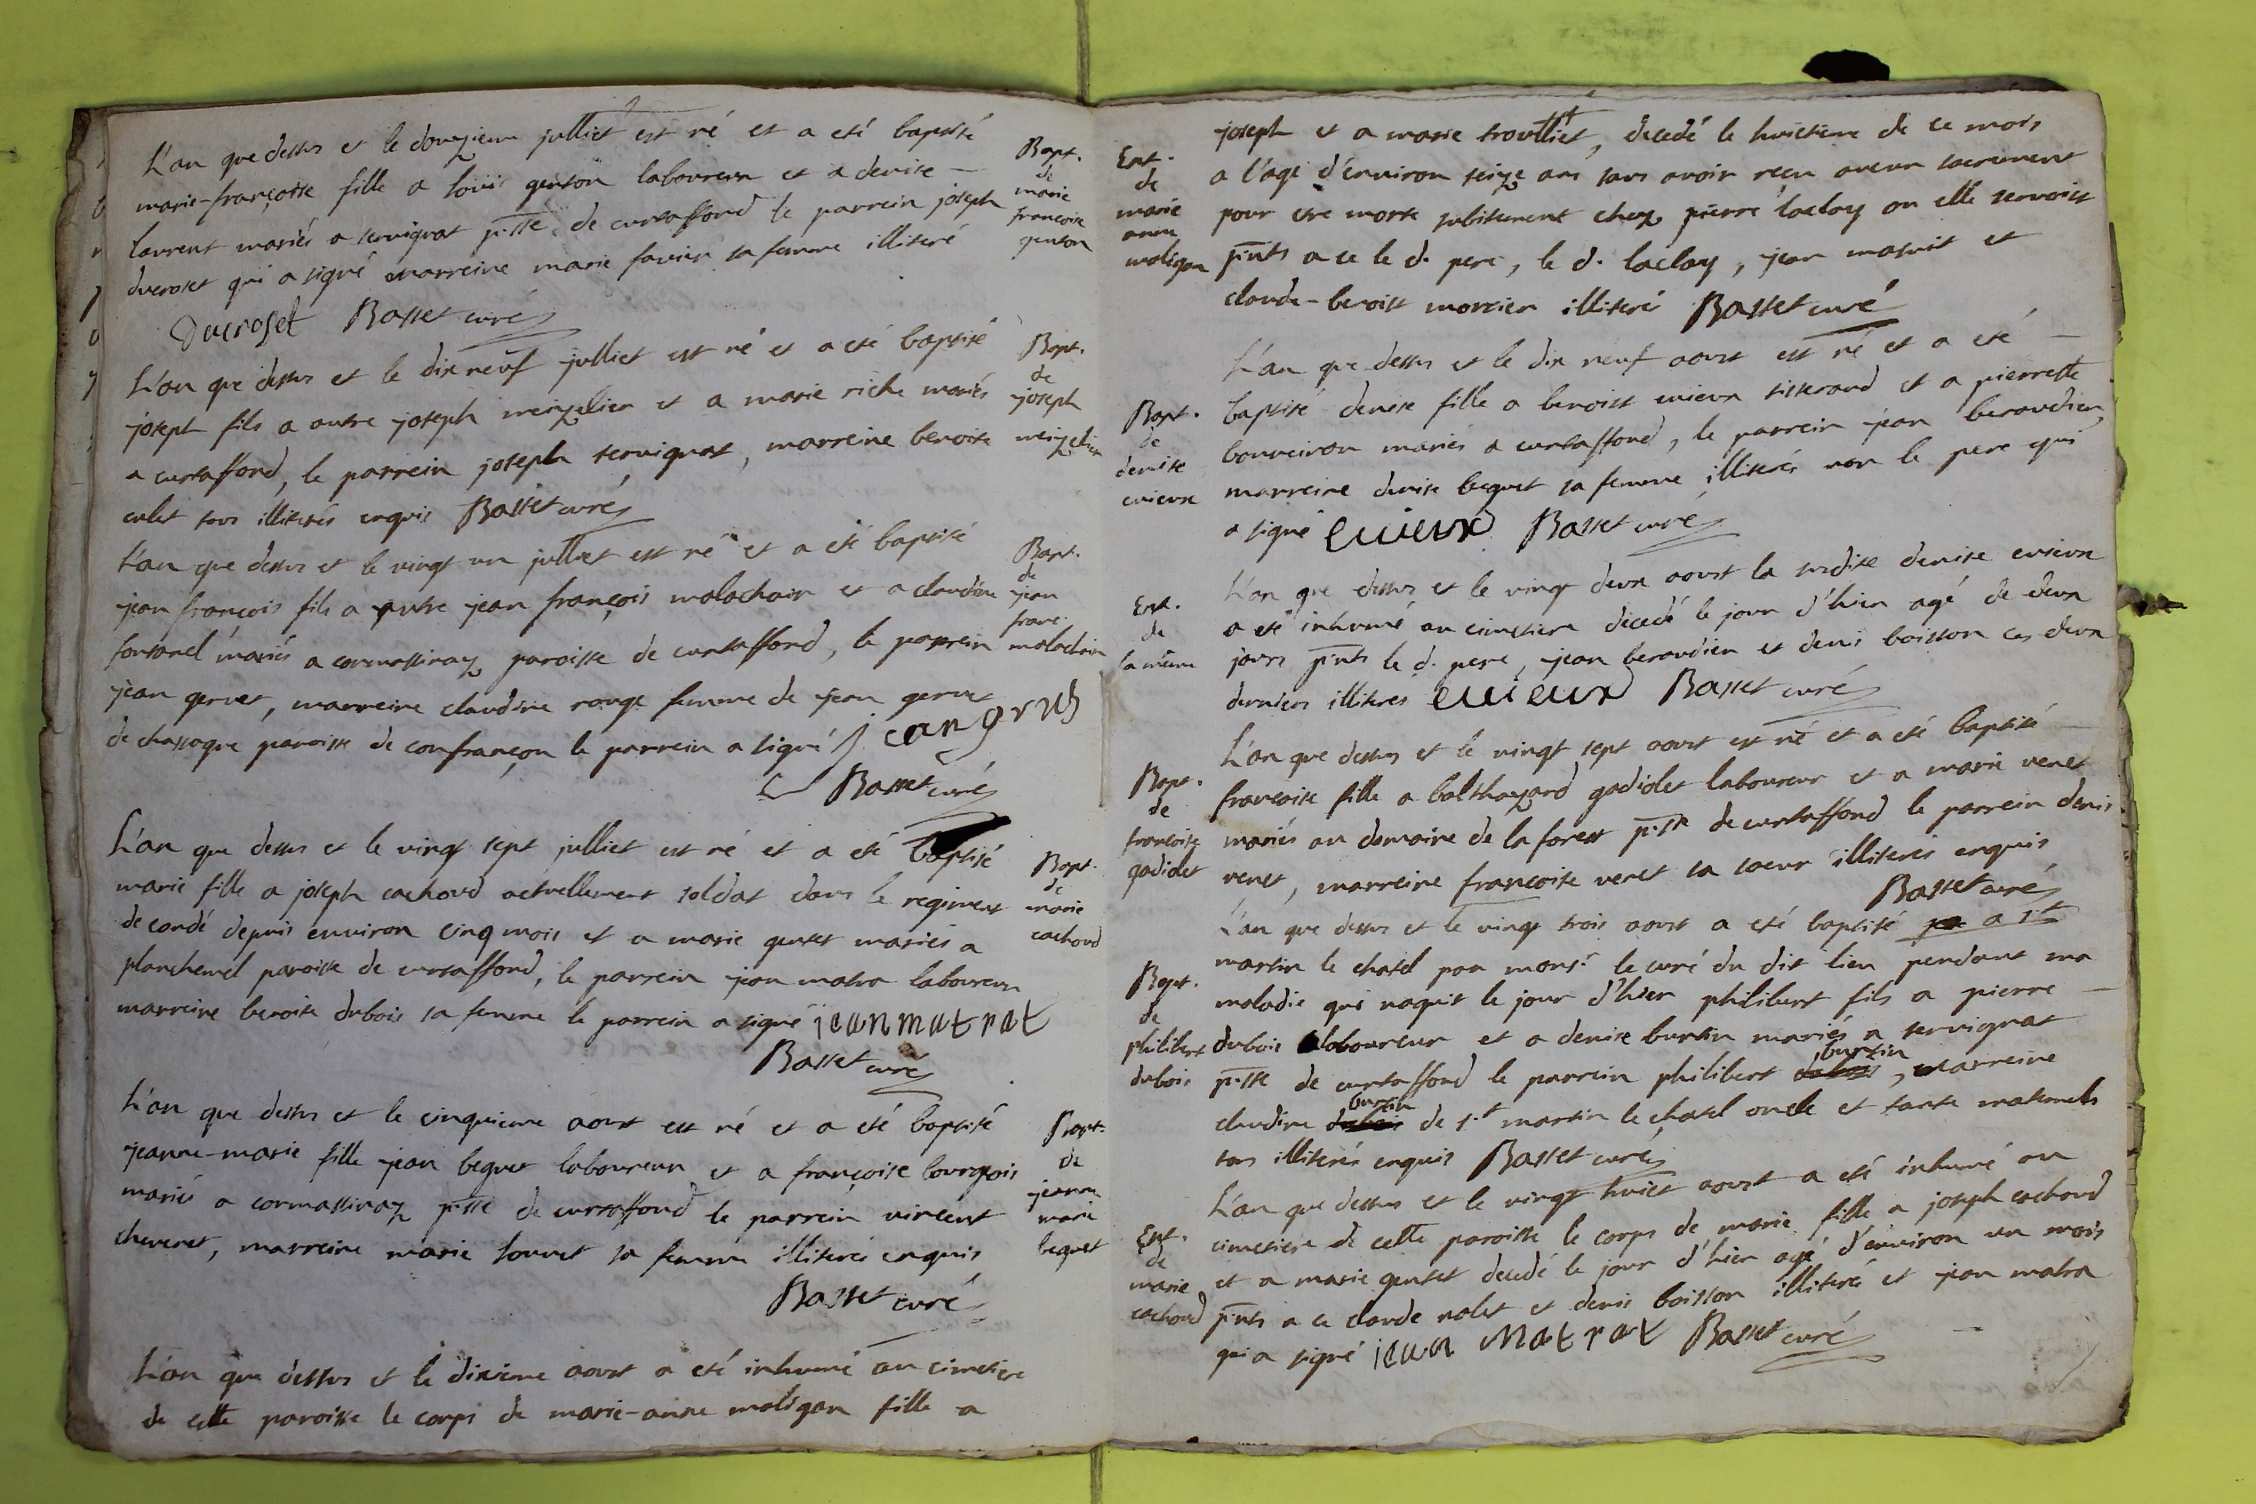 L'an que dessus et le douzieme julliet est né et a eté baptisé
marie-françoise fille a louis genton laboureur et a denise —
laurent mariés a servignat p.sse de curtaffond le parrein joseph
ducroset qui a signé marreine marie favier sa femme illiteré
Bapt.
de
marie
françoise
genton
Ducroset Basset curé
L'an que dessus et le dix neuf julliet est né et a eté baptisé
joseph fils a autre joseph meizelier et a marie riche mariés
a curtaffond, le parrein joseph servignat, marreine benoite
culet tous illiterés enquis Basset curé
Bapt.
de
joseph
meizelier
L'an que dessus et le vingt un julliet est né et a eté baptisé
jean françois fils a autre jean françois malachair et a claudine
fontanel mariés a cormassinaz paroisse de curtaffond, le parrein
jean gervet, marreine claudine rouge femme de jean gervet
de chassagne paroisse de confrançon le parrein a signé
Basset curé
Bapt.
de
jean
franc.
L'an que dessus et le vingt sept julliet est né et a eté baptisé
marie fille a joseph cachoud actuellement soldat dans le regiment
de condé depuis environ cinq mois et a marie gentet mariés a
planchemel paroisse de curtaffond, le parrein jean matra laboureur
marreine benoite dubois sa femme le parrein a signé jean matrat
Basset curé
Bapt.
de
marie
cachoud
L'an que dessus et le cinquieme aoust est né et a eté baptisé
jeanne-marie fille jean beguet laboureur et a françoise bourgeois
mariés a cormassinaz p.sse de curtaffond le parrein vincent
cheveret, marreine marie louvet sa femme illiterés enquis
Basset curé
Bapt.
de
jeanne
marie
beguet
L'an que dessus et le dixieme aoust a eté inhumé au cimetiere
de cette paroisse le corps de marie-anne maligan fille a
joseph et a marie troulliet, decedé le huictieme de ce mois
a l'age d'environ seize ans sans avoir reçu aucun sacrement
pour etre morte subitement chez pierre laclay ou elle servoist
p.nts a ce le d. pere, le d. laclay, jean masuit et
claude-benoist morcier illiterés Basset curé
Ent.
de
marie
anne
maligan
L'an que dessus et le dix neuf aoust est né et a eté —
baptisé denise fille a benoist cuieux tisserand et a pierrette
bouveiron mariés a curtaffond, le parrein jean beraudier,
marreine denise beguet sa femme illiterés non le pere qui
a signé cuieux Basset curé
Bapt.
de
denise
cuieux
L'an que dessus et le vingt deux aoust la susdite denise cuieux
a eté inhumé au cimetiere decedé le jour d'hier agé de deux
jours p.nts le d. pere, jean beraudier et denis boisson ces deux
derniers illiteres cuieux Basset curé
Ent.
de
la même
L'an que dessus et le vingt sept aoust est né et a eté baptisé —
françoise fille a balthazard gadiolet laboureur et a marie venet
mariés au domaine de la forest p.sse de curtaffond le parrein denis
venet, marreine françoise venet sa soeur illiterés enquis
Basset curé
Bapt.
de
françoise
gadiolet
L'an que dessus et le vingt trois aoust a eté baptisé a st
martin le chatel par monsr le curé du dit lieu pendant ma
maladie qui naquit le jour d'hier philibert fils a pierre —
dubois laboureur et a denise burtin mariés a servignat
p.sse de curtaffond le parrein philibert burtin, marreine
claudine burtin de st martin le chatel oncle et tante maternels
tous illiterés enquis Basset curé
Bapt.
de
philibert
dubois
L'an que dessus et le vingt huict aoust a eté inhumé au
cimetiere de cette paroisse le corps de marie fille a joseph cachoud
et a marie gentet decedé le jour d'hier agé d'environ un mois
p.nts a ce claude nolet et denis boisson illiterés et jean matra
qui a signé jean Matrat Basset curé
Ent.
de
marie
cachoud